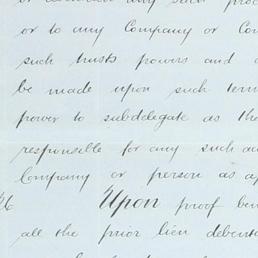 or to any Company or
such trusts powers and
be made upon such
power to subdelegate as
responsible for any such
Company or person as
Upon proof
all the prior lien